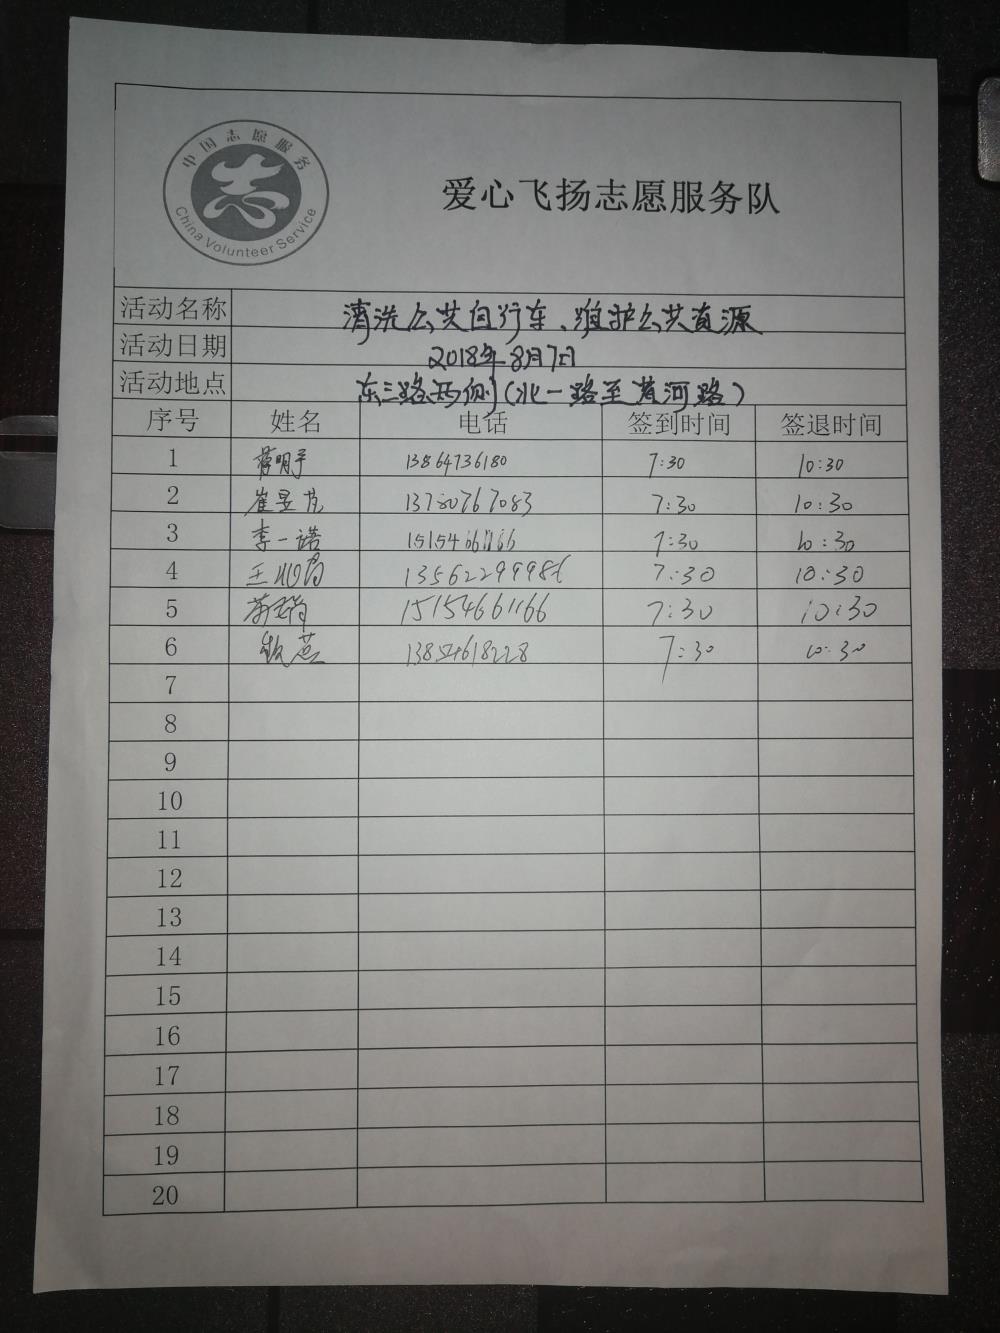 中国志愿服务
China Volunteer Service
爱心飞扬志愿服务队
活动名称 清洗公共自行车、维护公共资源
活动日期 2018年8月7日
活动地点 东三路西侧(北一路至黄河路)
序号 姓名 电话 签到时间 签退时间
1 蒋明宇 13864736180 7:30 10:30
2 崔昱 13780767083 7:30 10:30
3 李一诺 15154661166 7:30 10:30
4 13562299986 7:30 10:30
5 15154661166 7:30 10:30
6 7:30 10:30
7
8
9
10
11
12
13
14
15
16
17
18
19
20